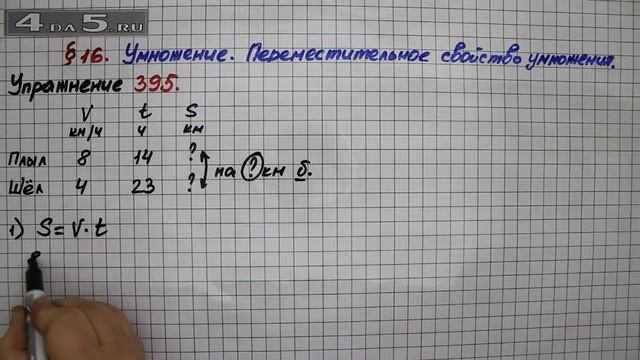 4DA5.RU
§16. Умножение. Переместительное свойство умножения.
Упражнение 395.
V t S
км/ч ч км
Плыл 8 14 ?
на ? км б.
Шёл 4 23 ?
1) S = V · t
8